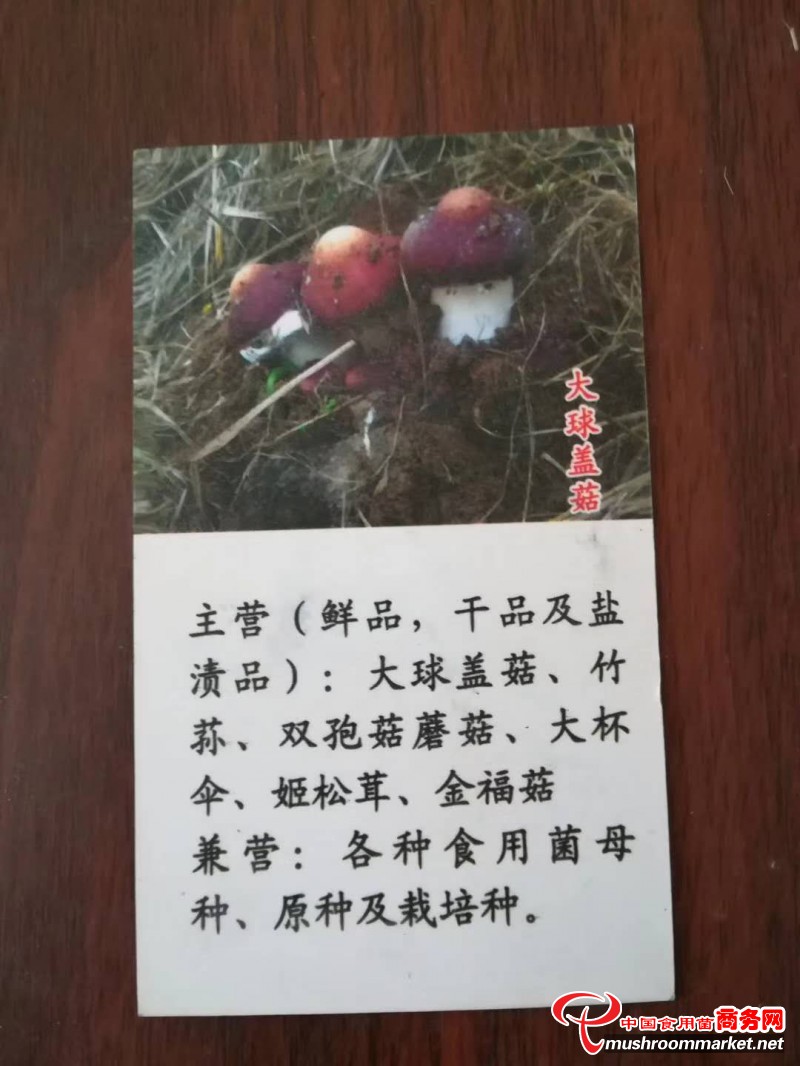 大球盖菇
主营（鲜品，干品及盐
渍品）：大球盖菇、竹
荪、双孢菇蘑菇、大杯
伞、姬松茸、金福菇
兼营：各种食用菌母
种、原种及栽培种。
中国食用菌商务网
mushroommarket.net